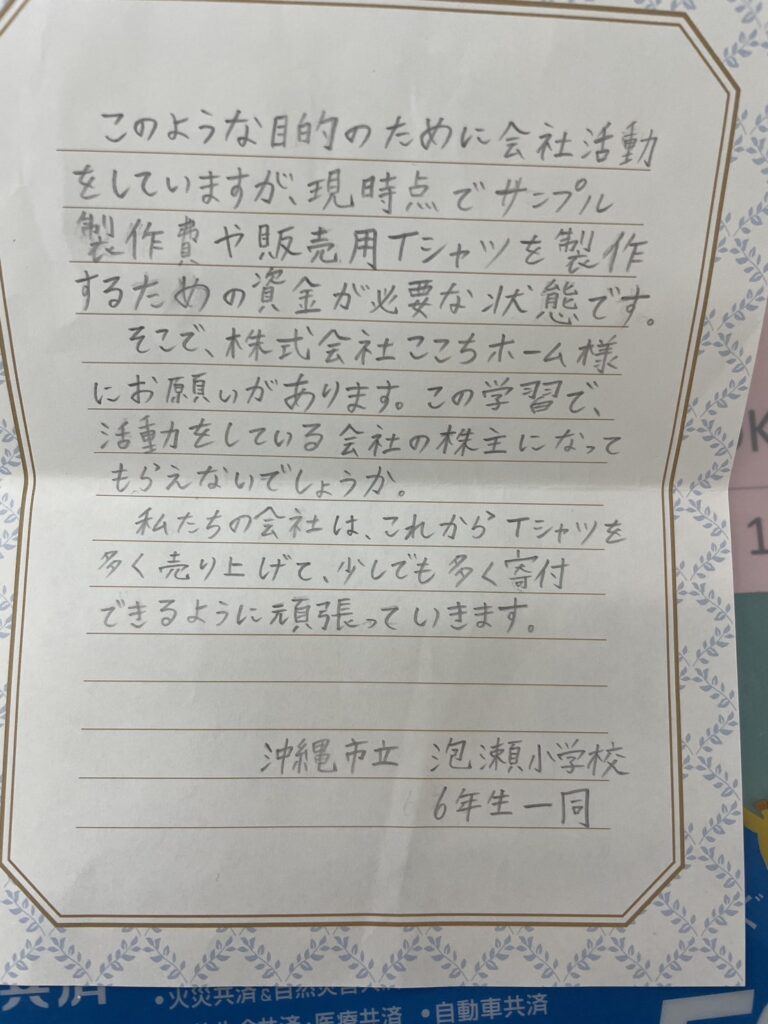 このような目的のために会社活動
をしていますが、現時点でサンプル
製作費や販売用Tシャツを製作
するための資金が必要な状態です。
そこで、株式会社ここちホーム様
にお願いがあります。この学習で、
活動をしている会社の株主になって
もらえないでしょうか。
私たちの会社は、これからTシャツを
多く売り上げて、少しでも多く寄付
できるように頑張っていきます。
沖縄市立 泡瀬小学校
6年生一同
共済
・火災共済&自然災害
・医療共済 ・自動車共済